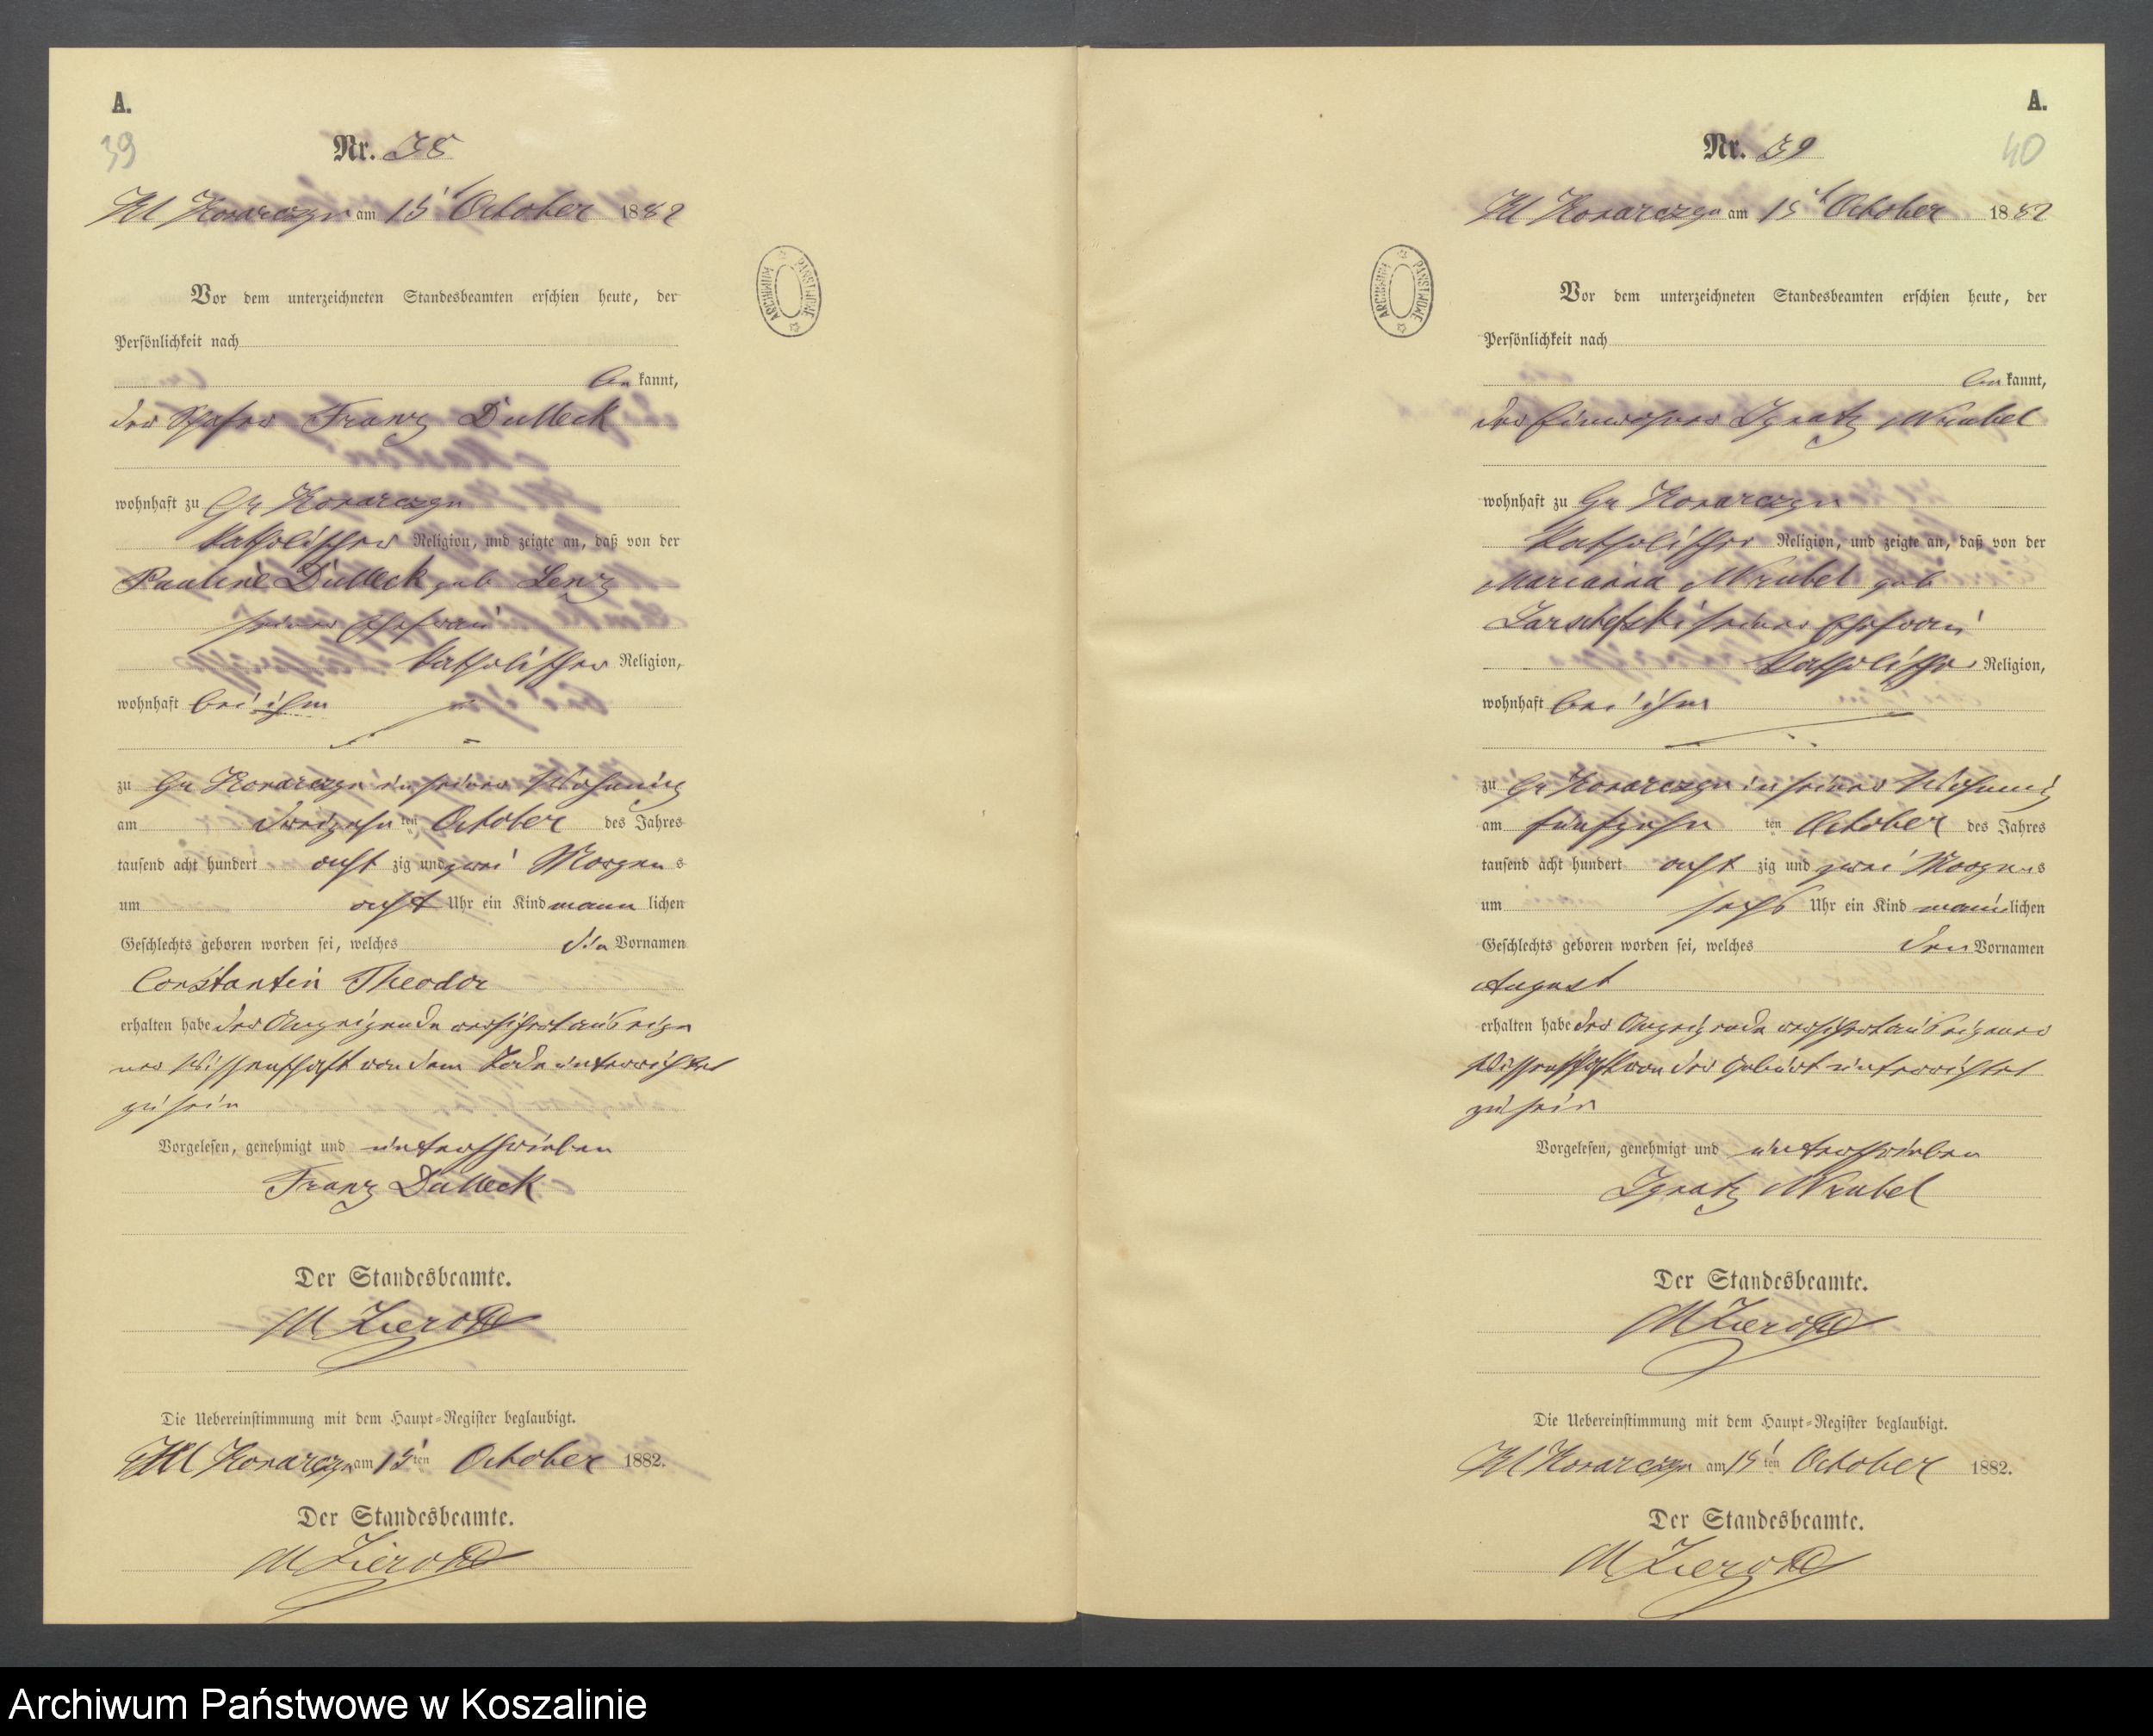 A.
39
Nr. 38
Kl Konarczyn am 15t October 1882
Vor dem unterzeichneten Standesbeamten erschien heute, der
Persönlichkeit nach
be kannt,
der Schäfer Franz Dulleck
wohnhaft zu Gr Konarczyn
katholischer Religion, und zeigte an, daß von der
Pauline Dulleck geb Lenz
seiner Ehefrau
katholischer Religion,
wohnhaft bei ihm
zu Gr Konarczyn in seiner Wohnung
am dreizehn ten October des Jahres
tausend acht hundert acht zig und zwei Morgens
um acht Uhr ein Kind männ lichen
Geschlechts geboren worden sei, welches die Vornamen
Constantin Theodor
erhalten habe der Anzeigende versichert aus eige
ner Wissenschaft von dem Tode unterrichtet
zu sein
Vorgelesen, genehmigt und unterschrieben
Franz Dulleck
Der Standesbeamte.
Die Uebereinstimmung mit dem Haupt-Register beglaubigt.
Kl Konarczyn am 15ten October 1882.
Der Standesbeamte.
A.
40
Nr. 39
Kl Konarczyn am 15t October 1882
ARCHIWUM PAŃSTWOWE
Vor dem unterzeichneten Standesbeamten erschien heute, der
Persönlichkeit nach
be kannt,
der Einwohner Ignatz Wrubel
wohnhaft zu Gr Konarczyn
katholischer Religion, und zeigte an, daß von der
Marianna Wrubel geb
seiner Ehefrau
katholischer Religion,
wohnhaft bei ihm
zu Gr Konarczyn in seiner Wohnung
am fünfzehn ten October des Jahres
tausend acht hundert acht zig und zwei Morgens
um sechs Uhr ein Kind männlichen
Geschlechts geboren worden sei, welches den Vornamen
August
erhalten habe der Anzeigende versichert aus eigener
Wissenschaft von der Geburt unterrichtet
zu sein
Vorgelesen, genehmigt und unterschrieben
Ignatz Wrubel
Der Standesbeamte.
Die Uebereinstimmung mit dem Haupt-Register beglaubigt.
Kl Konarczyn am 15ten October 1882.
Der Standesbeamte.
Archiwum Państwowe w Koszalinie